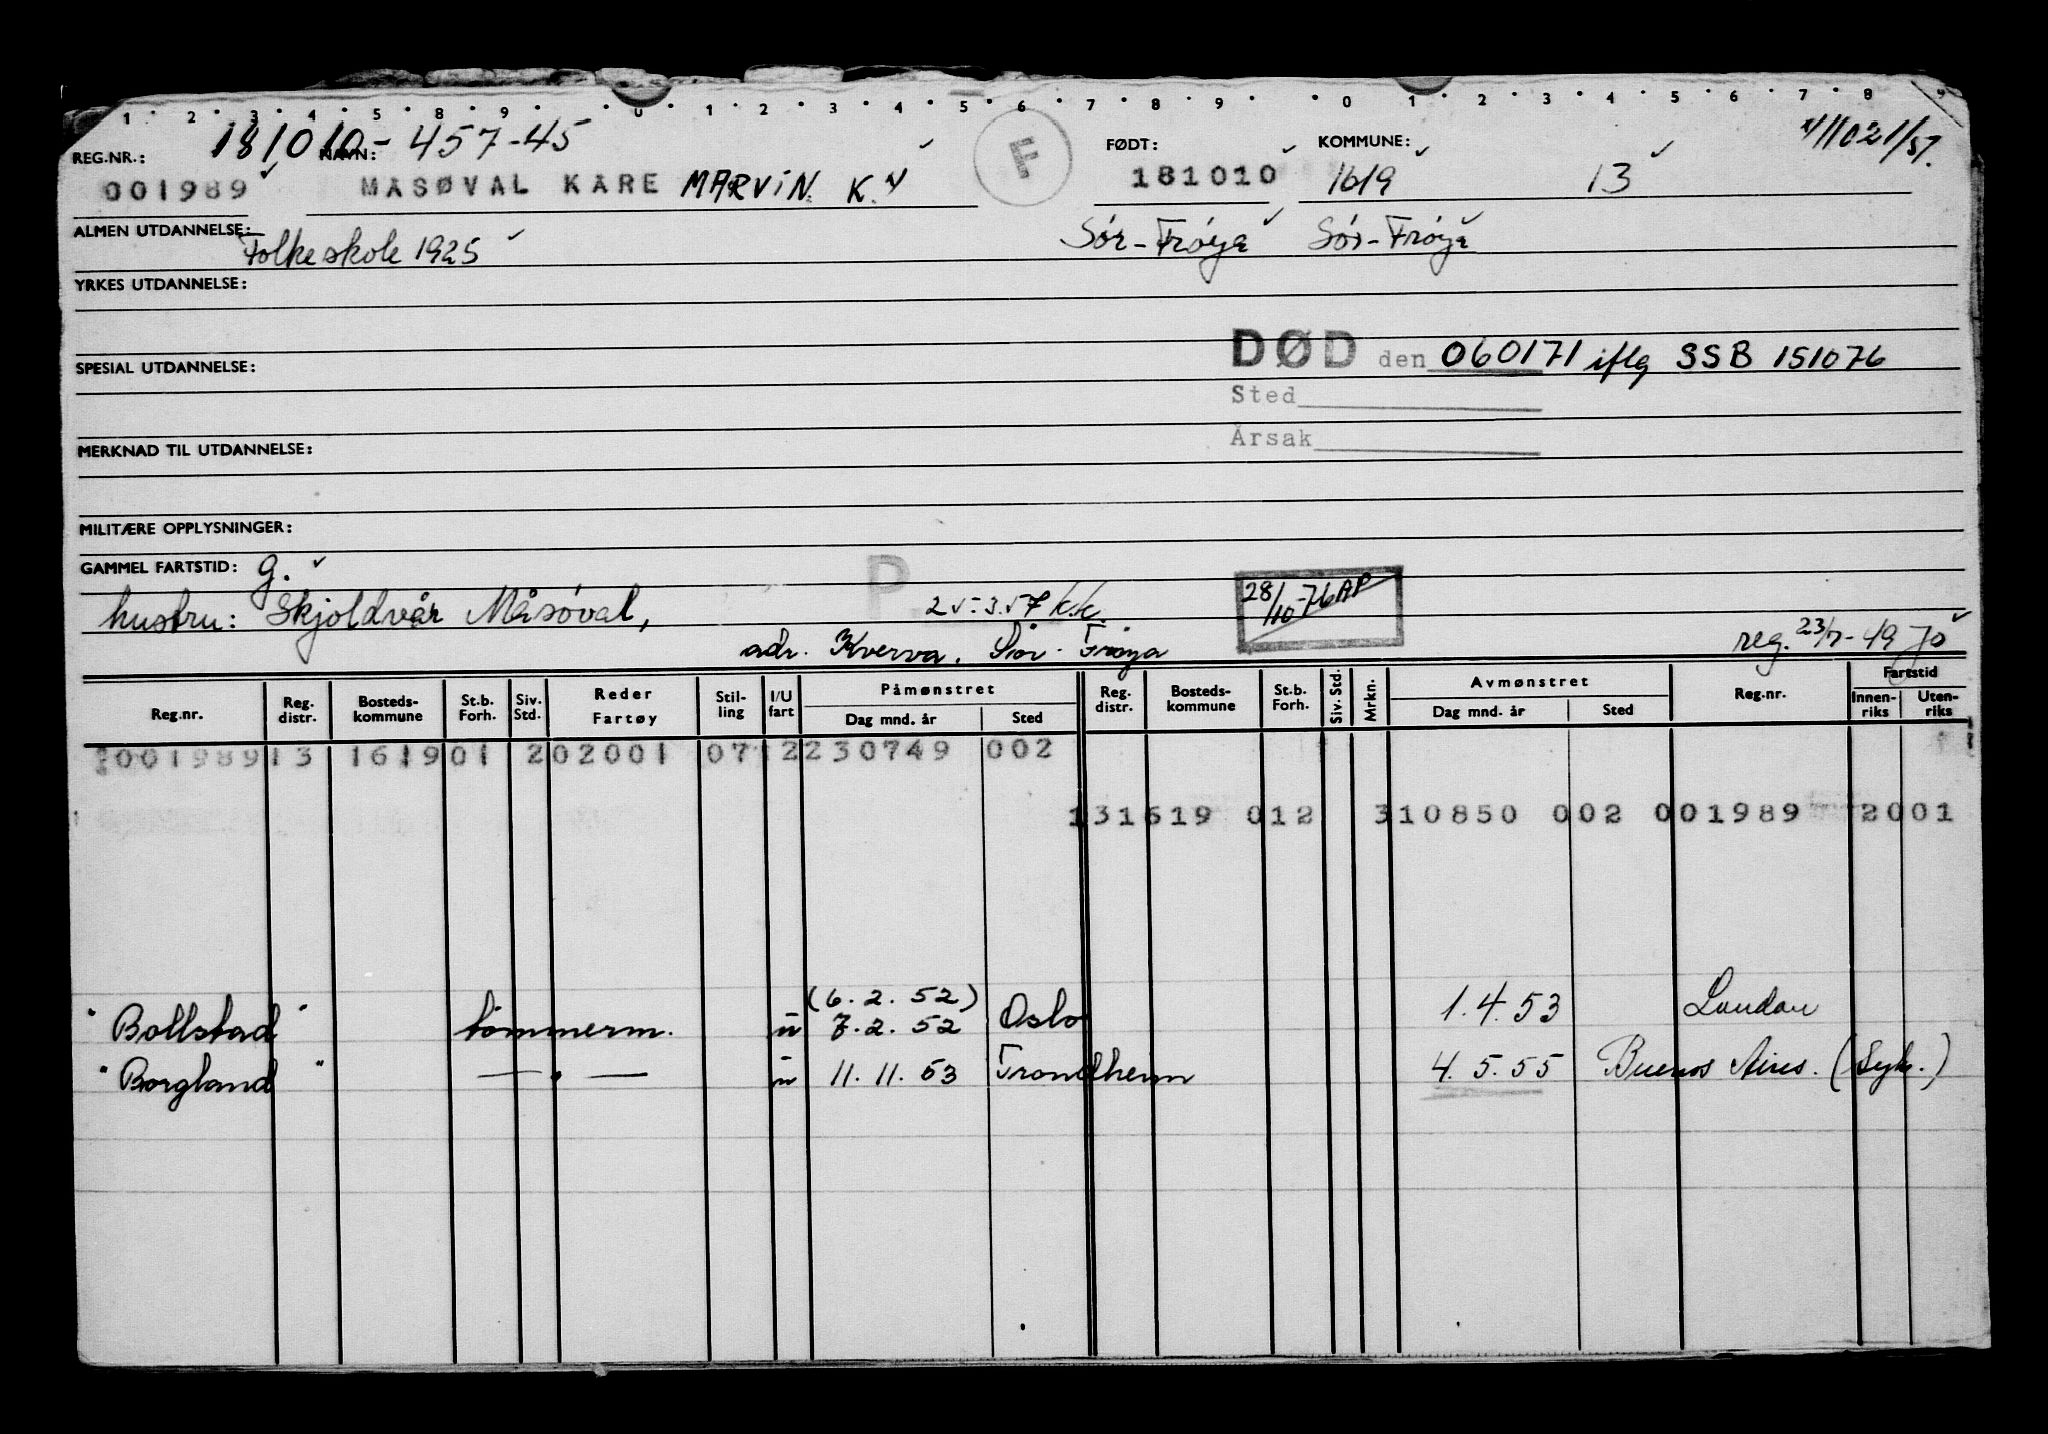 1 2 3 4 5 8 9 0 1 2 3 4 5 6 7 8 9 0 1 2 3 4 5 6 7 8 9
REG.NR.: 181010-457-45 NAVN: F FØDT: KOMMUNE:
001989 MASØVAL KARE MARVIN K. 181010 1619 13
ALMEN UTDANNELSE: Folkeskole 1925 Sór-Fróya Sór-Fróya
YRKES UTDANNELSE:
DØD den 060171 iflg SSB 151076
SPESIAL UTDANNELSE:
Sted
Årsak
MERKNAD TIL UTDANNELSE:
MILITÆRE OPPLYSNINGER:
GAMMEL FARTSTID: g.
P
hustru: Skjoldvår Måsóval, 25.3.57 k.k. 28/10-76 AP
adr. Kverva. Sór-Fróya reg. 23/7-49 Jo
Reg.nr. Reg. distr. Bosteds-kommune St.b. Forh. Siv. Std. Reder Fartøy Stil-ling I/U fart Påmønstret Dag mnd. år Sted Reg. distr. Bosteds-kommune St.b. Forh. Siv. Std. Mrkn. Avmønstret Dag mnd. år Sted Reg.nr. Fartstid Innen-riks Uten-riks
001989 13 1619 01 2 02001 07 2 230749 002
131619 012 310850 002 001989 2001
"Bollstad" tømmerm. u (6.2.52) 7.2.52 Oslo 1.4.53 London
"Borgland" —"— u 11.11.53 Trondheim 4.5.55 Buenos Aires. (Syk.)